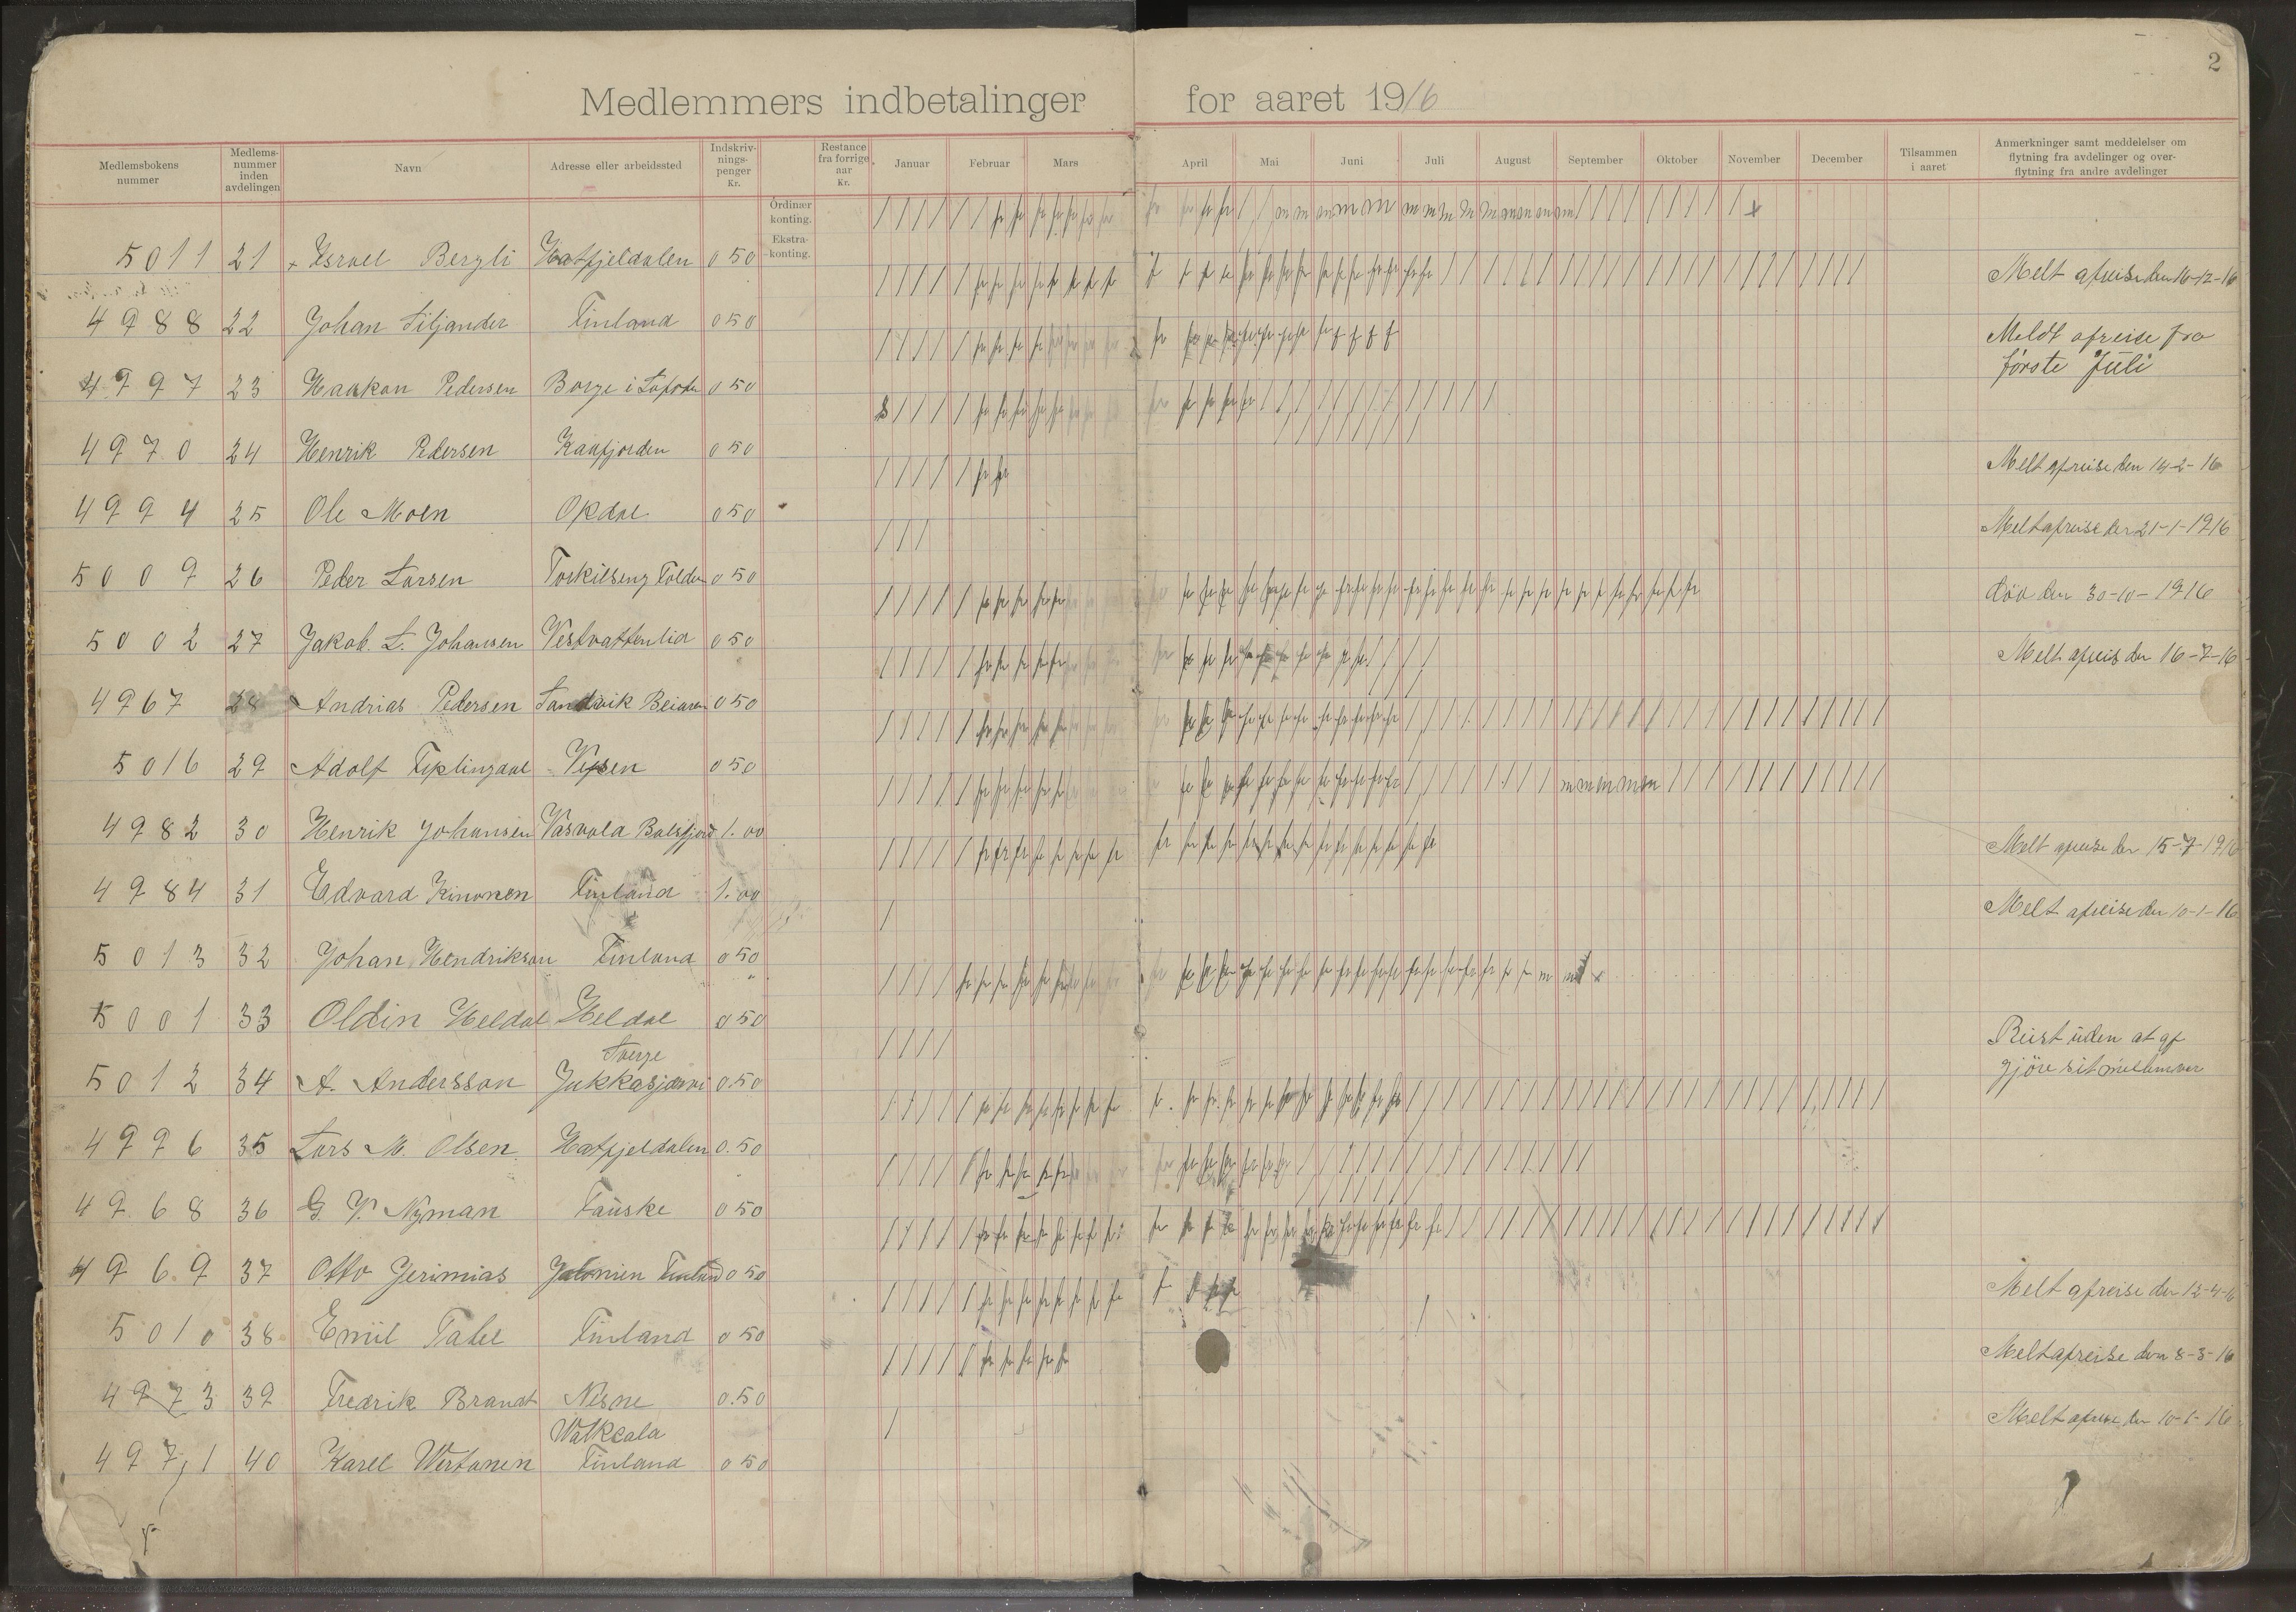 2
Medlemmers indbetalinger for aaret 1916
Medlemsbokens nummer
Medlems-nummer inden avdelingen
Navn
Adresse eller arbeidssted
Indskriv-nings-penger Kr.
Restance fra forrige aar Kr.
Januar Februar Mars April Mai Juni Juli August September Oktober November December
Tilsammen i aaret
Anmerkninger samt meddelelser om flytning fra avdelinger og over-flytning fra andre avdelinger
Ordinær konting.
Ekstra-konting.
5011 21 x Israel Bergli Hatfjeldalen 0 50 Melt afreise den 16-12-16
4988 22 Johan Siljander Finland 0 50 Meldt afreise fra
første Juli
4997 23 Haakon Pedersen Borge i Lofoten 0 50
4970 24 Henrik Pedersen Kaafjorden 0 50 Melt afreise den 14-2-16
4994 25 Ole Moen Opdal 0 50 Melt afreise den 21-1-1916
5009 26 Peder Larsen 0 50 död den 30-10-1916
5002 27 Jakob. L. Johansen Vestvattenlid 0 50 Melt afreis den 16-7-16
4967 28 Andrias Pedersen Sandvik Beiaren 0 50
5016 29 Adolf Vefsen 0 50
4982 30 Henrik Johansen Balsfjord 1.00 Melt afreise den 15-7-1916
4984 31 Edvard Kinonen Finland 1.00 Melt afreise den 10-1-16
5013 32 Johan Hendrikson Finland 0 50
5001 33 Oldin Heldal Heldal 0 50 Reist uden at gf
gjöre sit
Sverge
5012 34 A. Andersson Jukkasjarvi 0.50
4996 35 Lars M. Olsen Hatfjeldalen 0.50
4968 36 G. V. Nyman Fauske 0 50
4969 37 Otto Jerimias Finland 0 50 Melt afreise den 12-4-16
5010 38 Emil Tabel Finland 0 50 Melt afreise den 8-3-16
4973 39 Fredrik Brandt Nesne 0.50 Melt afreise den 10-1-16
Walkeala
4971 40 Karel Wertanen Finland 0 50